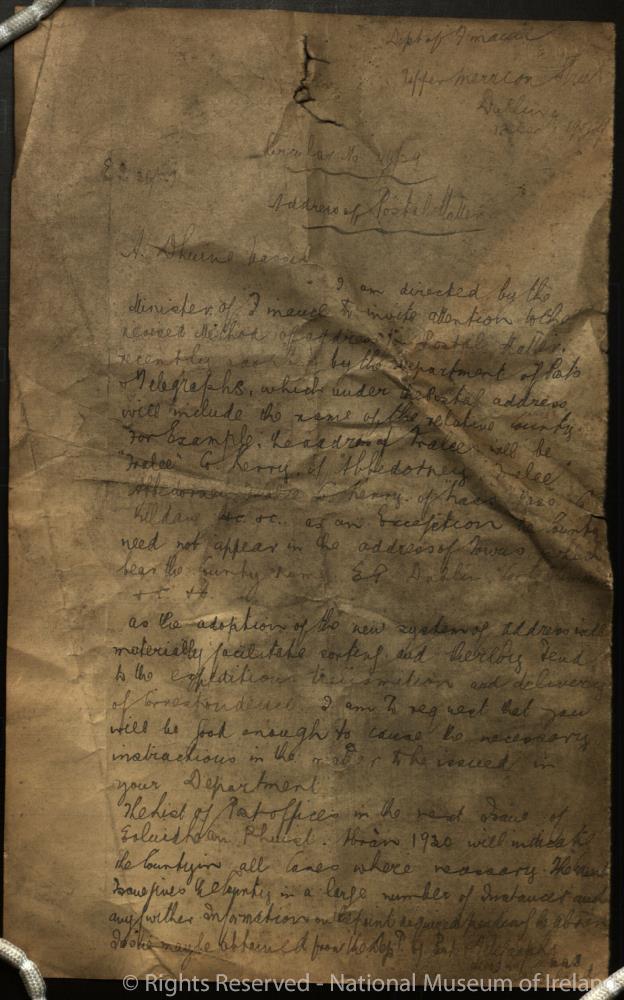 Dept of Finance
Upper Merrion Street
Dublin
Circular No 29
Address of Postal Matter
A Dhuine Uasail
I am directed by the
Minister of Finance to invite attention to the
revised Method of address in Postal Matter
recently by the Department of Posts
& Telegraphs, which under the Postal address
will include the name of the relative County
For Example, the address of Tralee will be
"Tralee" Co Kerry, of Abbedorney Tralee
Abbedorney Tralee Co Kerry, of Naas
Kildare &c. &c. as an Exception the County
need not appear in the address of Towns which
bear the County name E.G Dublin
&c. &c.
as the adoption of the new system of address will
materially facilitate sorting and therby Tend
to the expeditious transmition and delivery
of Correspondence I am To request that you
will be good enough to cause the necessary
instructions in the matter to be issued in
your Department
The list of Post offices in the next Issue of
Eolaidhe an Phuist. 1930 will indicate
the County in all Cases where necessary. The
Issue gives the County in a large number of Instances and
any further Information on required
may be obtained from the Dept. of Post & Telegraphs
© Rights Reserved - National Museum of Ireland